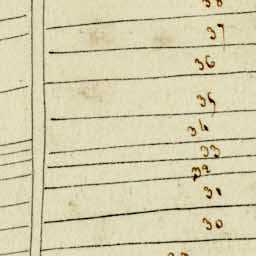 38
37
36
35
34
33
32
31
30